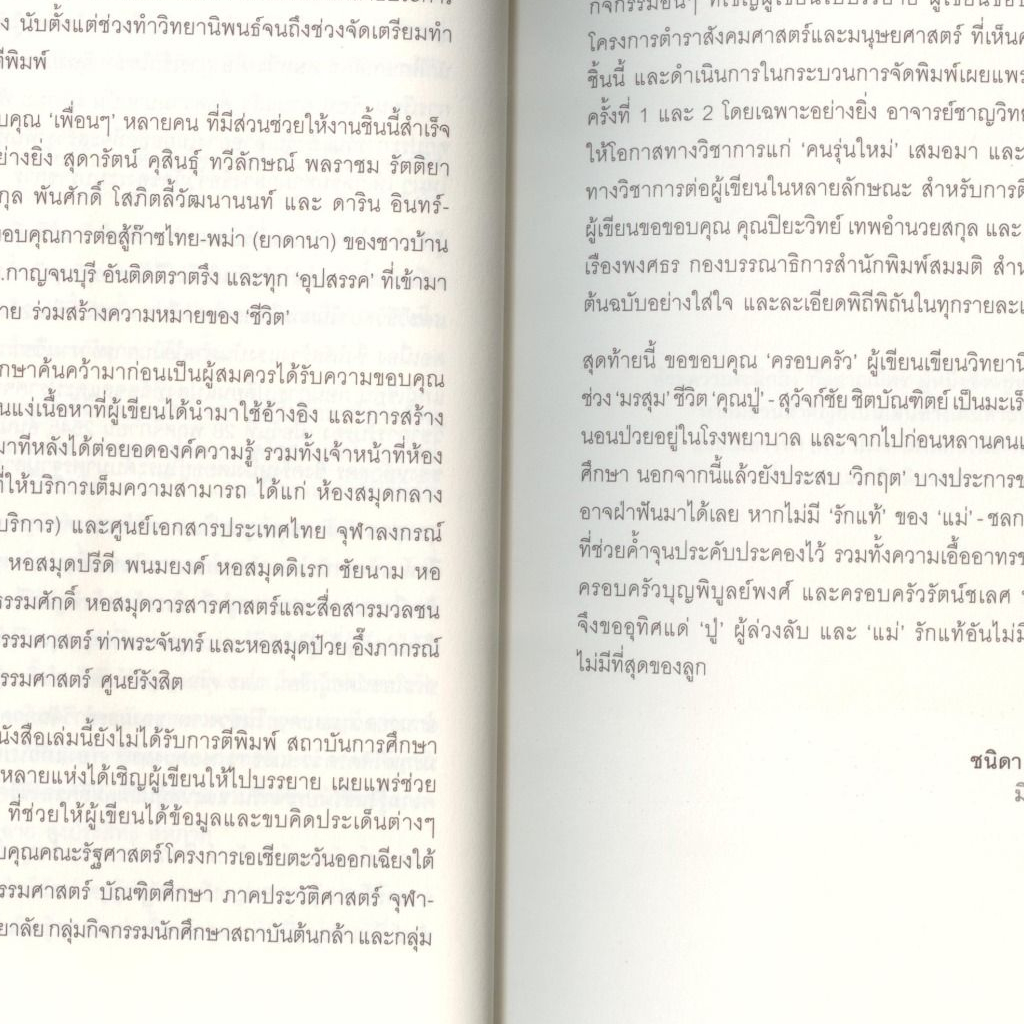 ง นับตั้งแต่ช่วงทำวิทยานิพนธ์จนถึงช่วงจัดเตรียมทำ
ตีพิมพ์
บคุณ ‘เพื่อนๆ’ หลายคน ที่มีส่วนช่วยให้งานชิ้นนี้สำเร็จ
ย่างยิ่ง สุดารัตน์ คุสินธุ์ ทวีลักษณ์ พลราชม รัตติยา
กุล พันศักดิ์ โสภิตลี้วัฒนานนท์ และ ดาริน อินทร์-
ขอบคุณการต่อสู้ก๊าซไทย-พม่า (ยาดานา) ของชาวบ้าน
.กาญจนบุรี อันติดตราตรึง และทุก ‘อุปสรรค’ ที่เข้ามา
าย ร่วมสร้างความหมายของ ‘ชีวิต’
กษาค้นคว้ามาก่อนเป็นผู้สมควรได้รับความขอบคุณ
นแง่เนื้อหาที่ผู้เขียนได้นำมาใช้อ้างอิง และการสร้าง
มาทีหลังได้ต่อยอดองค์ความรู้ รวมทั้งเจ้าหน้าที่ห้อง
ที่ให้บริการเต็มความสามารถ ได้แก่ ห้องสมุดกลาง
บริการ) และศูนย์เอกสารประเทศไทย จุฬาลงกรณ์
หอสมุดปรีดี พนมยงค์ หอสมุดดิเรก ชัยนาม หอ
ธรรมศักดิ์ หอสมุดวารสารศาสตร์และสื่อสารมวลชน
รรมศาสตร์ ท่าพระจันทร์ และหอสมุดป๋วย อึ๊งภากรณ์
รรมศาสตร์ ศูนย์รังสิต
นังสือเล่มนี้ยังไม่ได้รับการตีพิมพ์ สถาบันการศึกษา
หลายแห่งได้เชิญผู้เขียนให้ไปบรรยาย เผยแพร่ช่วย
ที่ช่วยให้ผู้เขียนได้ข้อมูลและขบคิดประเด็นต่างๆ
บคุณคณะรัฐศาสตร์ โครงการเอเชียตะวันออกเฉียงใต้
รรมศาสตร์ บัณฑิตศึกษา ภาคประวัติศาสตร์ จุฬา-
ยาลัย กลุ่มกิจกรรมนักศึกษาสถาบันต้นกล้า และกลุ่ม
กิจกรรมอื่นๆ ที่เชิญผู้เขียนไปบรรยาย
โครงการตำราสังคมศาสตร์และมนุษยศาสตร์ ที่เห็น
ชิ้นนี้ และดำเนินการในกระบวนการจัดพิมพ์เผยแพร
ครั้งที่ 1 และ 2 โดยเฉพาะอย่างยิ่ง อาจารย์ชาญวิท
ให้โอกาสทางวิชาการแก่ ‘คนรุ่นใหม่’ เสมอมา และ
ทางวิชาการต่อผู้เขียนในหลายลักษณะ สำหรับการตี
ผู้เขียนขอขอบคุณ คุณปิยะวิทย์ เทพอำนวยสกุล และ
เรืองพงศธร กองบรรณาธิการสำนักพิมพ์สมมติ สำน
ต้นฉบับอย่างใส่ใจ และละเอียดพิถีพิถันในทุกรายละเ
สุดท้ายนี้ ขอขอบคุณ ‘ครอบครัว’ ผู้เขียนเขียนวิทยานิ
ช่วง ‘มรสุม’ ชีวิต ‘คุณปู่’ - สุวัจก์ชัย ชิตบัณฑิตย์ เป็นมะเร็
นอนป่วยอยู่ในโรงพยาบาล และจากไปก่อนหลานคนเ
ศึกษา นอกจากนี้แล้วยังประสบ ‘วิกฤต’ บางประการข
อาจฝ่าฟันมาได้เลย หากไม่มี ‘รักแท้’ ของ ‘แม่’ - ชลก
ที่ช่วยค้ำจุนประคับประคองไว้ รวมทั้งความเอื้ออาทรข
ครอบครัวบุญพิบูลย์พงศ์ และครอบครัวรัตน์ชเลศ
จึงขออุทิศแด่ ‘ปู่’ ผู้ล่วงลับ และ ‘แม่’ รักแท้อันไม่มี
ไม่มีที่สุดของลูก
ชนิดา
มิ